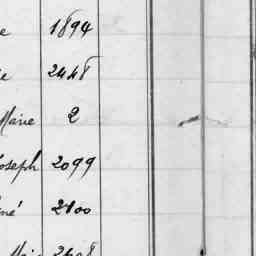 e 1894
e 2448
Marie 2
Joseph 2099
né 2100